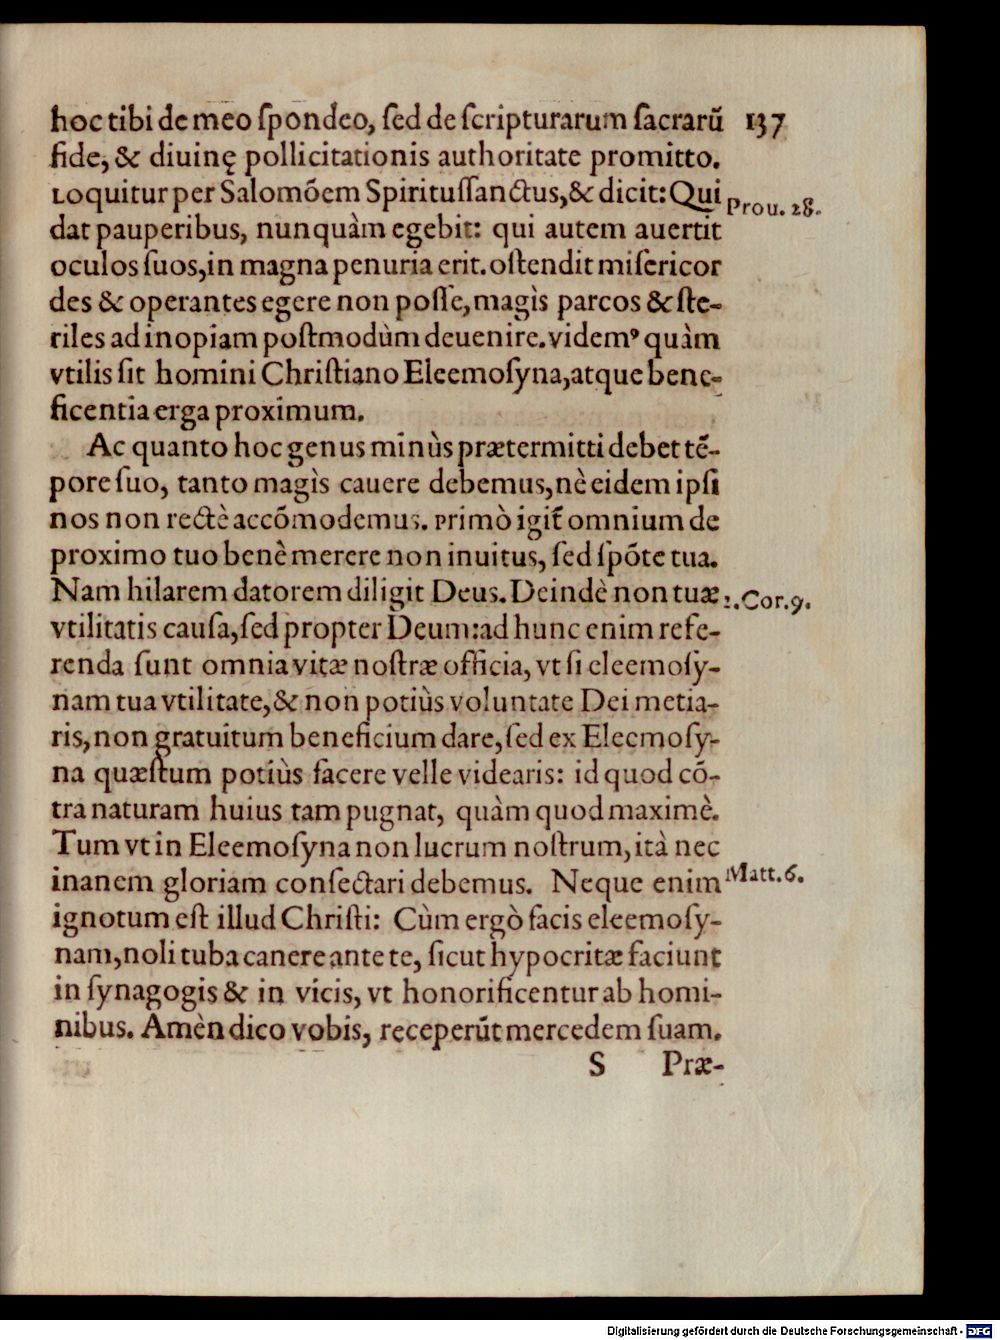 hoc tibi de meo ſpondeo, ſed de ſcripturarum ſacrarũ 137
fide, & diuinę pollicitationis authoritate promitto.
Loquitur per Salomõem Spirituſſanctus, & dicit: Qui Prou. 28.
dat pauperibus, nunquàm egebit: qui autem auertit
oculos ſuos, in magna penuria erit. oſtendit miſericor
des & operantes egere non poſſe, magìs parcos & ſte-
riles ad inopiam poſtmodùm deuenire. videmꝰ quàm
vtilis ſit homini Chriſtiano Eleemoſyna, atque bene-
ficentia erga proximum.
Ac quanto hoc genus minùs prætermitti debet tẽ-
pore ſuo, tanto magìs cauere debemus, nè eidem ipſi
nos non rectè accõmodemus. Primò igit̃ omnium de
proximo tuo benè merere non inuitus, ſed ſpõte tua.
Nam hilarem datorem diligit Deus. Deindè non tuæ 2. Cor. 9.
vtilitatis cauſa, ſed propter Deum: ad hunc enim refe-
renda ſunt omnia vitæ noſtræ officia, vt ſi eleemoſy-
nam tua vtilitate, & non potiùs voluntate Dei metia-
ris, non gratuitum beneficium dare, ſed ex Eleemoſy-
na quæſtum potiùs facere velle videaris: id quod cõ-
tra naturam huius tam pugnat, quàm quod maximè.
Tum vt in Eleemoſyna non lucrum noſtrum, ità nec
inanem gloriam conſectari debemus. Neque enim Matt. 6.
ignotum eſt illud Chriſti: Cùm ergò facis eleemoſy-
nam, noli tuba canere ante te, ſicut hypocritæ faciunt
in ſynagogis & in vicis, vt honorificentur ab homi-
nibus. Amèn dico vobis, receperũt mercedem ſuam.
S Præ-
Digitalisierung gefördert durch die Deutsche Forschungsgemeinschaft - DFG